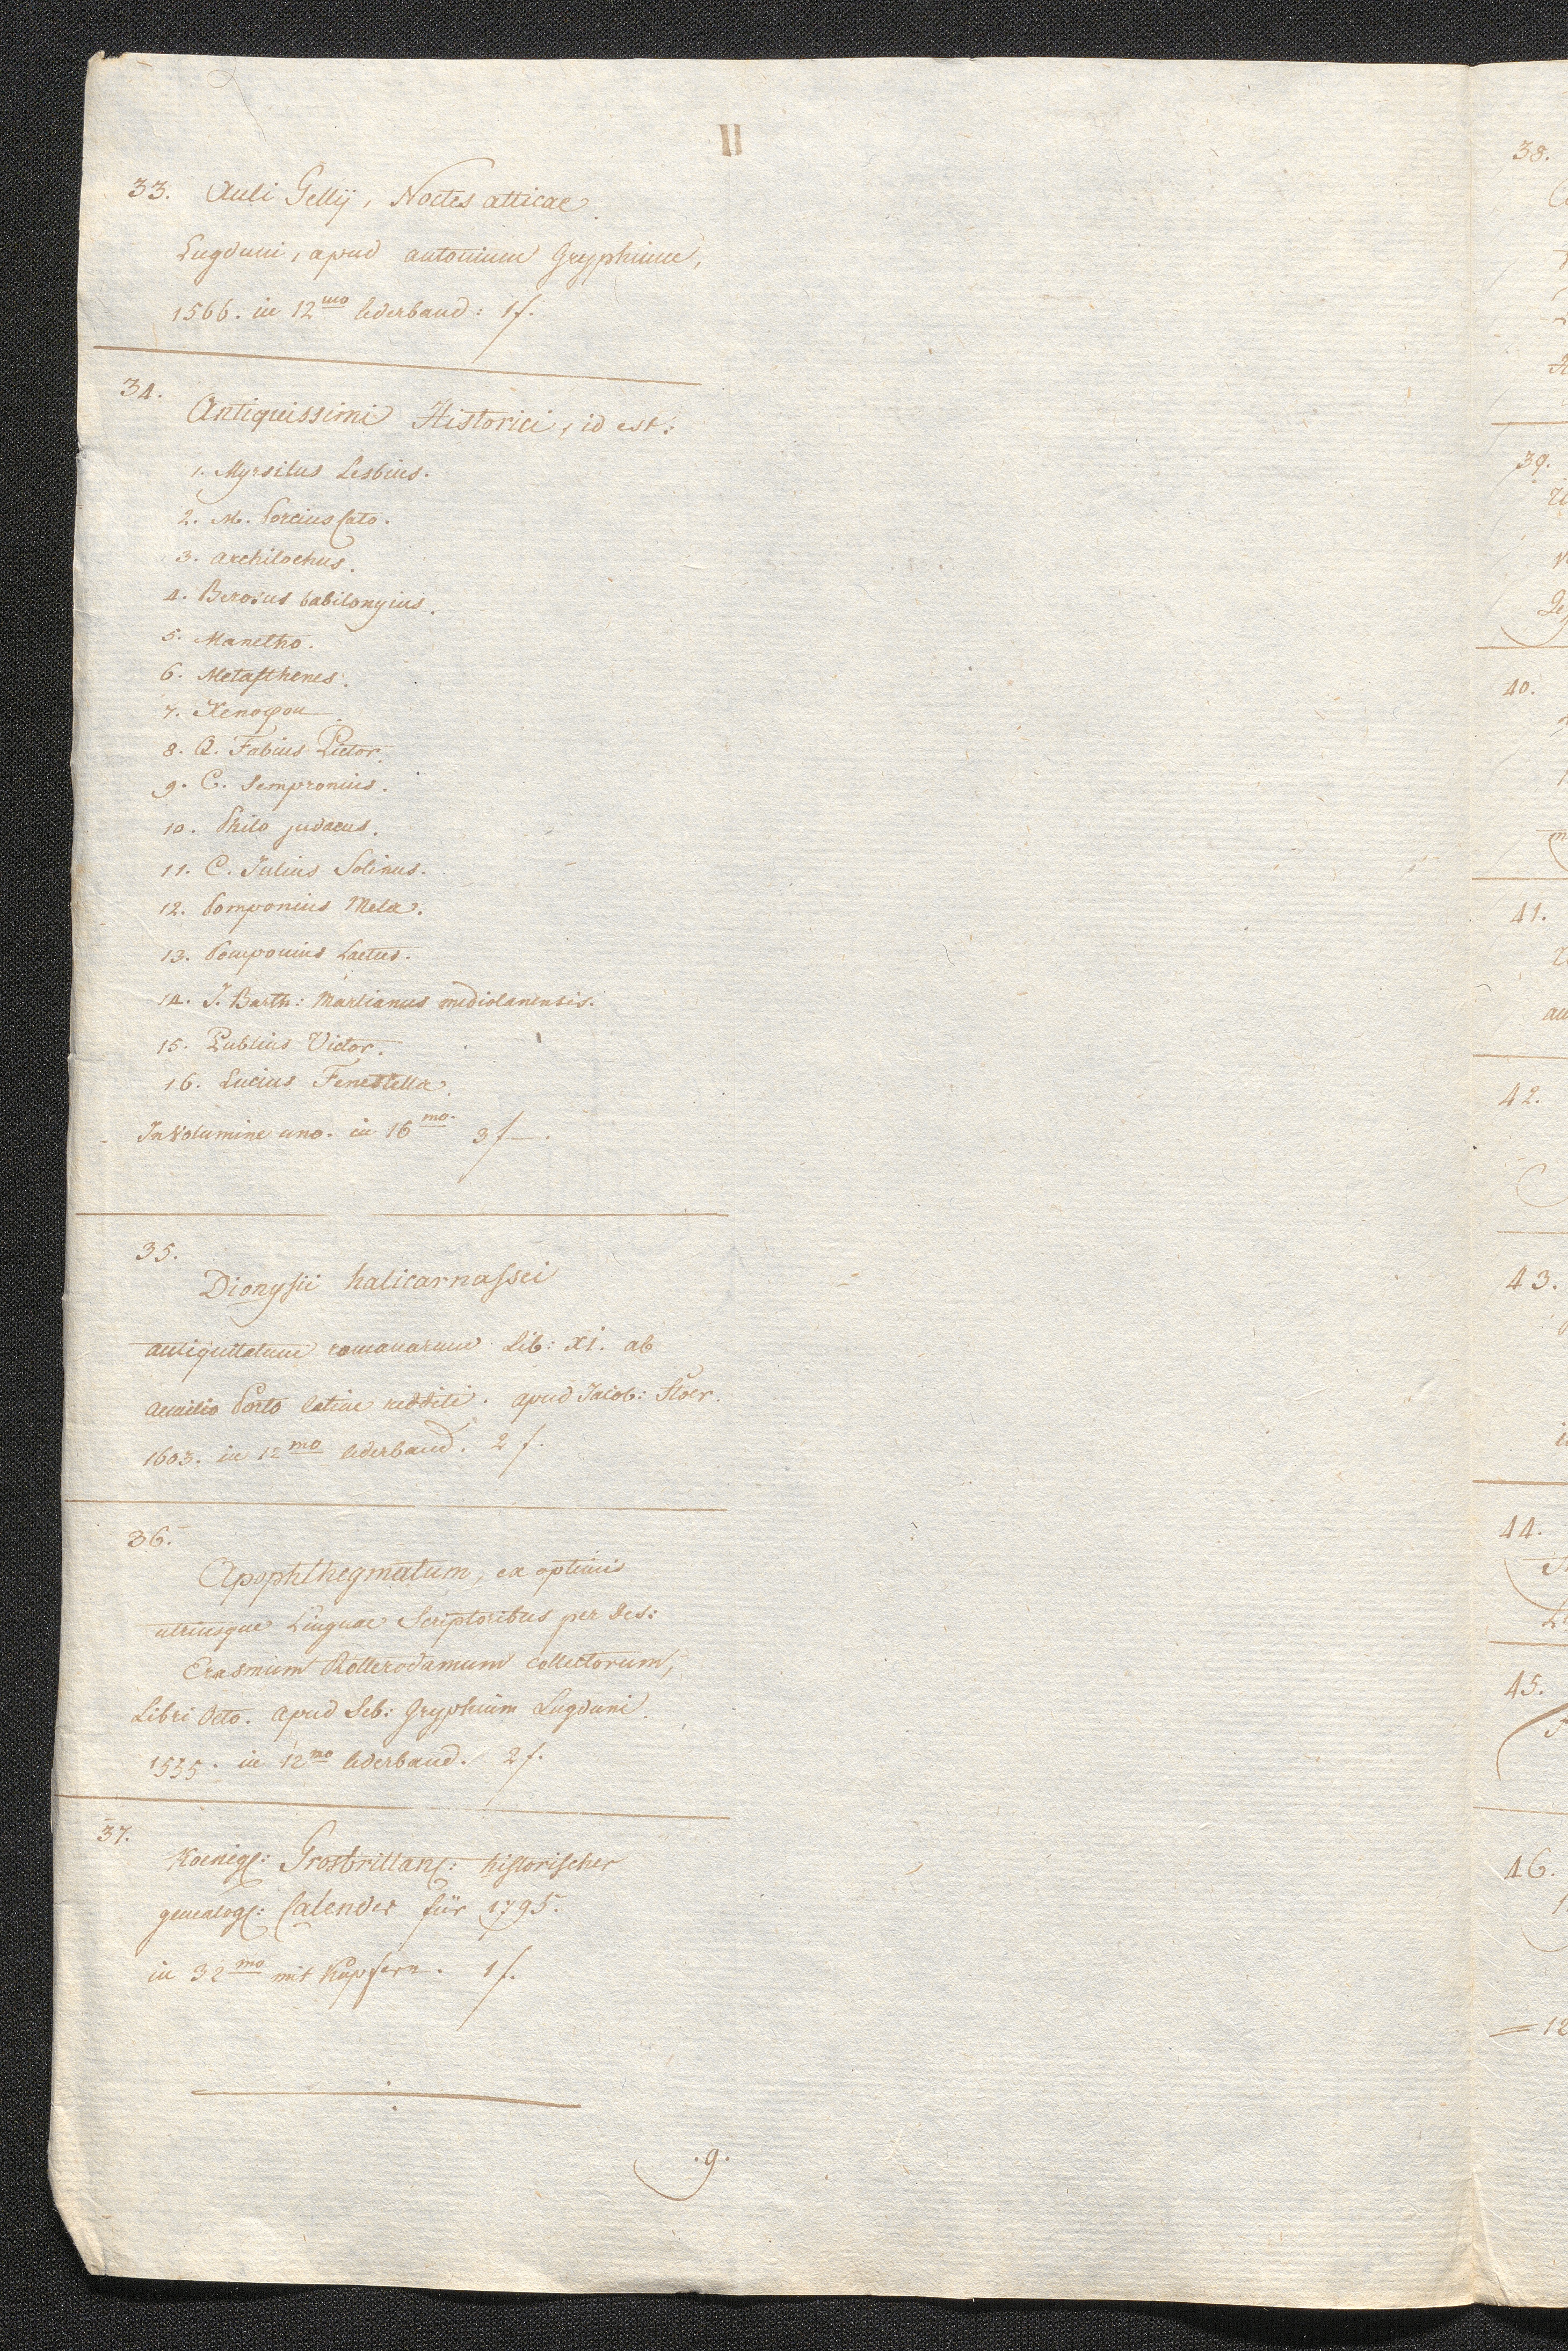 II
33. Auli Gellÿ, Noctes atticae.
Lugduni, apud antonium Gryphium,
1566. in 12mo lederband: 1f.
34.
Antiquissimi Historici, id est:
1. Myrsilus Lesbius.
2. M. Porcius Cato.
3. Archilochus.
4. Berosus babilonyius.
5. Manetho.
6. Metasthenes.
7. Xenopon
8. Q. Fabius Pictor.
9. C. Sempronius.
10. Philo judaeus.
11. C. Julius Solinus.
12. Pomponius Mela.
13. Pomponius Laetus.
14. J. Barth: Marlianus mediolanensis.
15. Publius Victor.
16. Lucius Fenestella.
In Volumine uno. in 16mo. 3f—.
35.
Dionysii halicarnassei
antiquitatum romanarum Lib: XI. ab
Aemilio Porto latine redditi. apud Jacob: Stoer.
1603. in 12mo lederband. 2f.
36.
Apophthegmatum, ex optimis
utriusque Linguae Scriptoribus per Des:
Erasmum Rotterodamum collectorum,
Libri Octo. apud Seb: Gryphium Lugduni.
in 12mo lederband. 2f.
37.
Koenigl: Grosbrittanl: historischer
genealogl: Calender für 1795.
in 32mo mit Kupfern. 1f.
.9.
38.
39.
40.
41.
42.
43.
44.
45.
46.